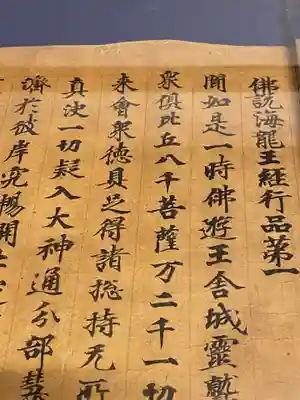 佛說海龍王經行品第一
聞如是一時佛遊王舍城靈鷲
眾俱比丘八千菩薩万二千一切
來會眾德具足得諸揔持无所
真决一切疑入大神通分部慧
濟於彼岸究暢開士